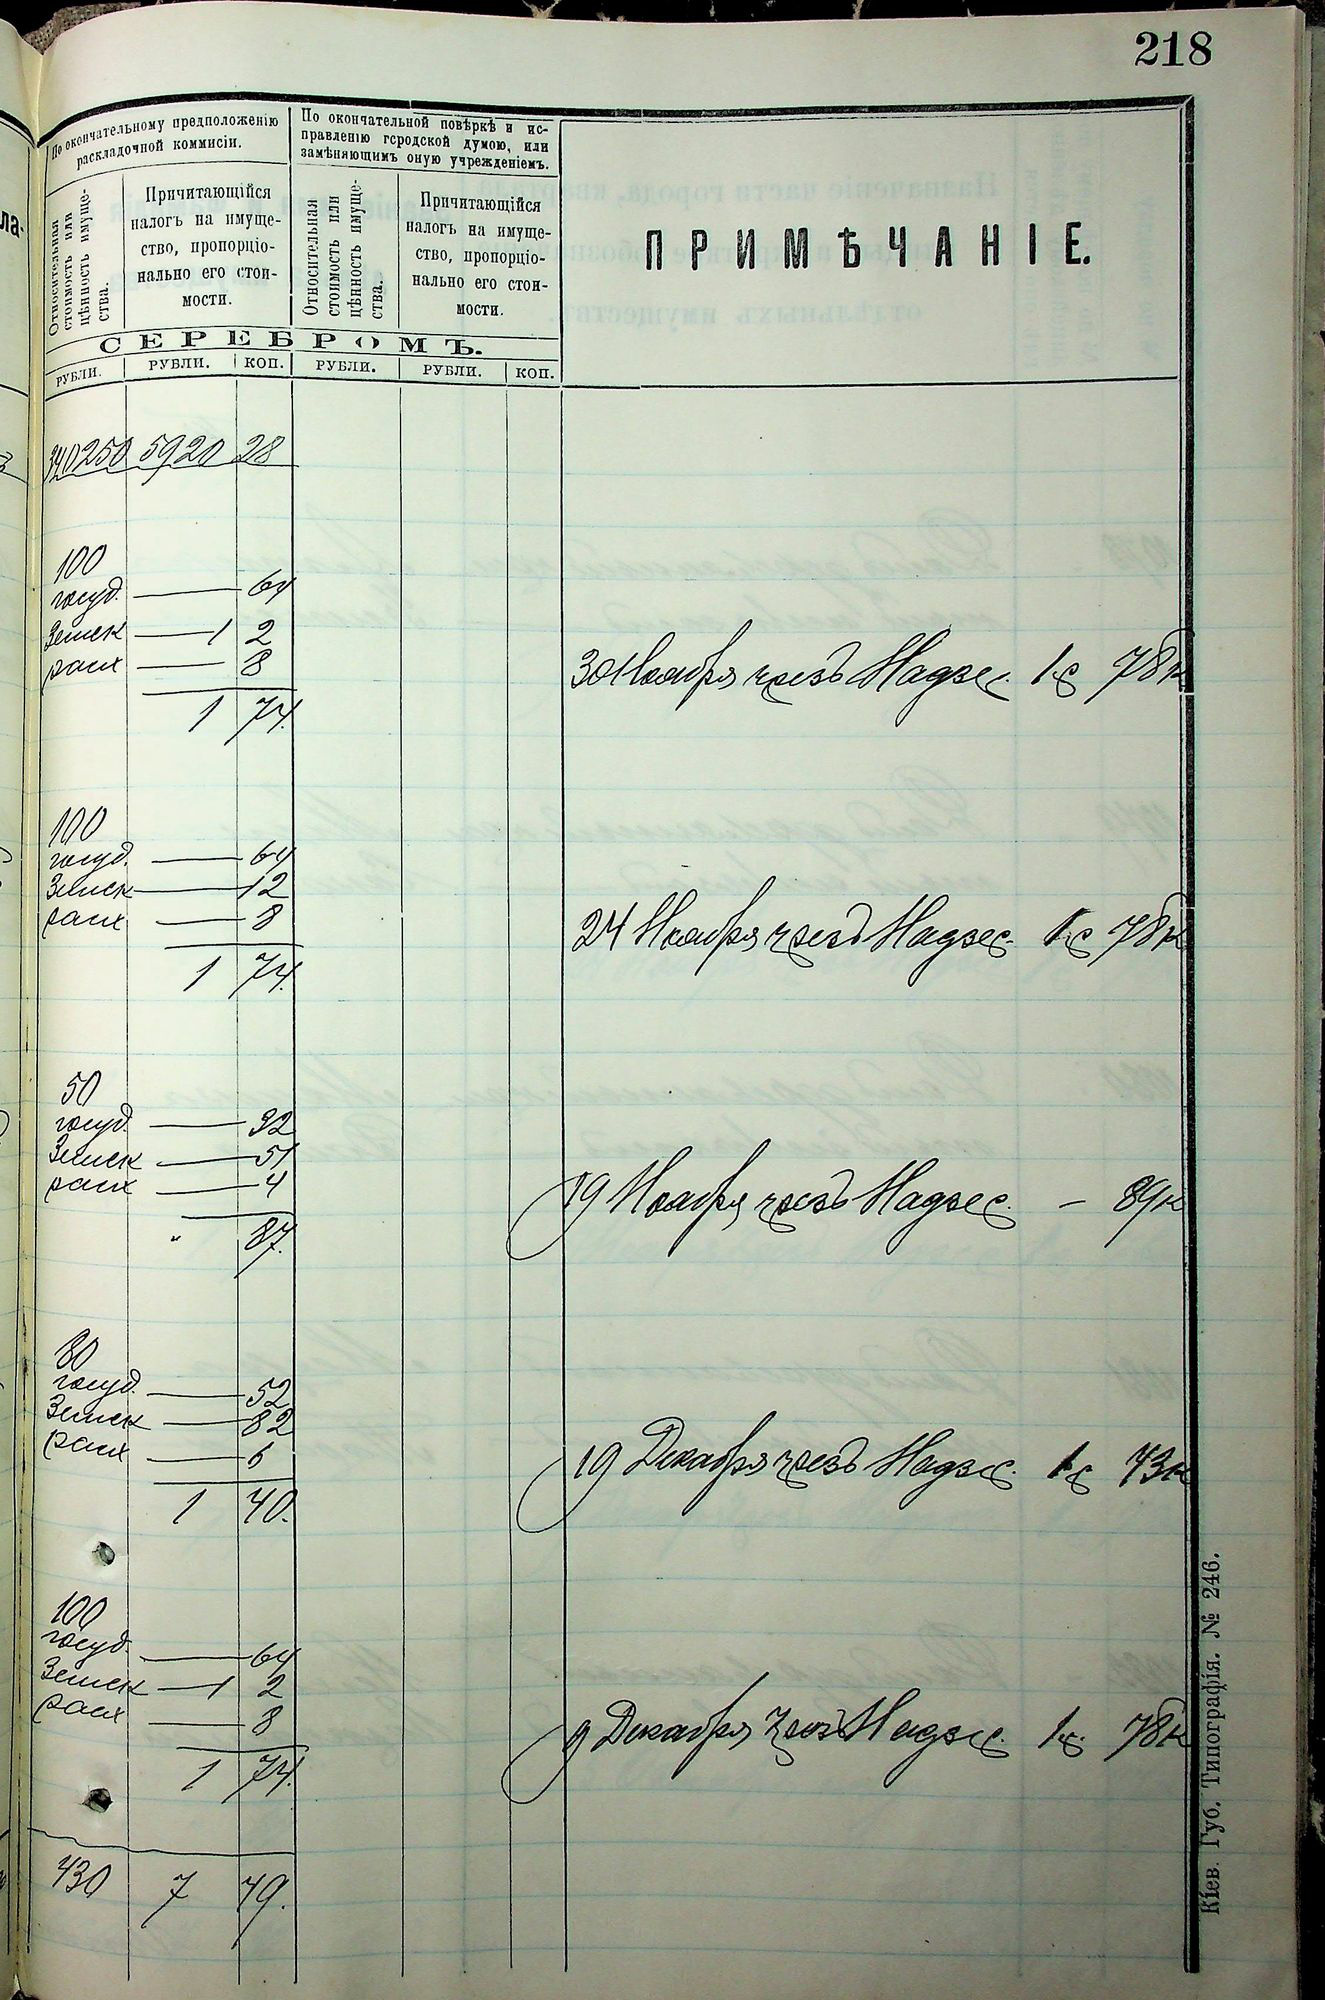 218
По окончательному предположенію
раскладочной коммисіи.
По окончательной повѣркѣ и ис-
правленію городской думою, или
замѣняющимъ оную учрежденіемъ.
Относительная
стоимость или
цѣнность имуще-
ства.
Причитающійся
налогъ на имуще-
ство, пропорціо-
нально его стои-
мости.
Относительная
стоимость или
цѣнность имуще-
ства.
Причитающійся
налогъ на имуще-
ство, пропорціо-
нально его стои-
мости.
ПРИМѢЧАНІЕ.
СЕРЕБРОМЪ.
РУБЛИ. РУБЛИ. КОП. РУБЛИ. РУБЛИ. КОП.
340250 5920 28
100
госуд. — 64
Земск — 1 2
расх — 8
30 Ноября чрезъ Надзес. 1 р 78 к
1 74.
100
госуд. — 64
Земск — 12
расх — 8
24 Ноября чрезъ Надзес. 1 р 78 к
1 74.
50
госуд. — 32
Земск — 51
расх — 4
19 Ноября чрезъ Надзес. — 89 к
" 87.
80
госуд. — 52
Земск — 82
расх — 6
19 Декабря чрезъ Надзес. 1 р 43 к
1 40.
100
госуд. — 64
Земск — 1 2
расх — 8
9 Декабря чрезъ Надзес. 1 р. 78 к
1 74.
430 7 49.
Кіев. Губ. Типографія. № 246.